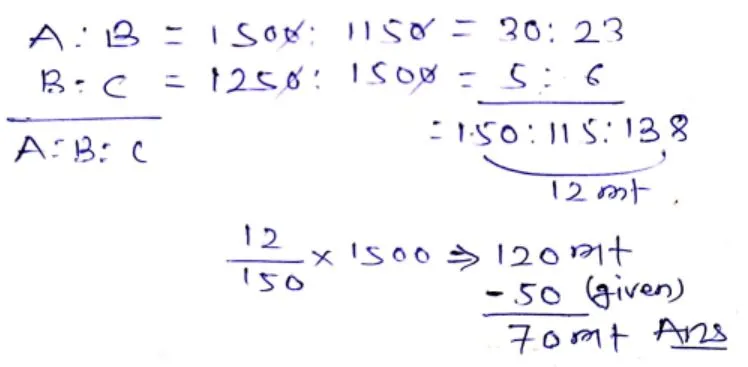 A : B = 1500 : 1150 = 30 : 23
B : C = 1250 : 1500 = 5 : 6
A : B : C = 150 : 115 : 138
12 mt.
12/150 × 1500 ⇒ 120 mt
- 50 (given)
70 mt Ans